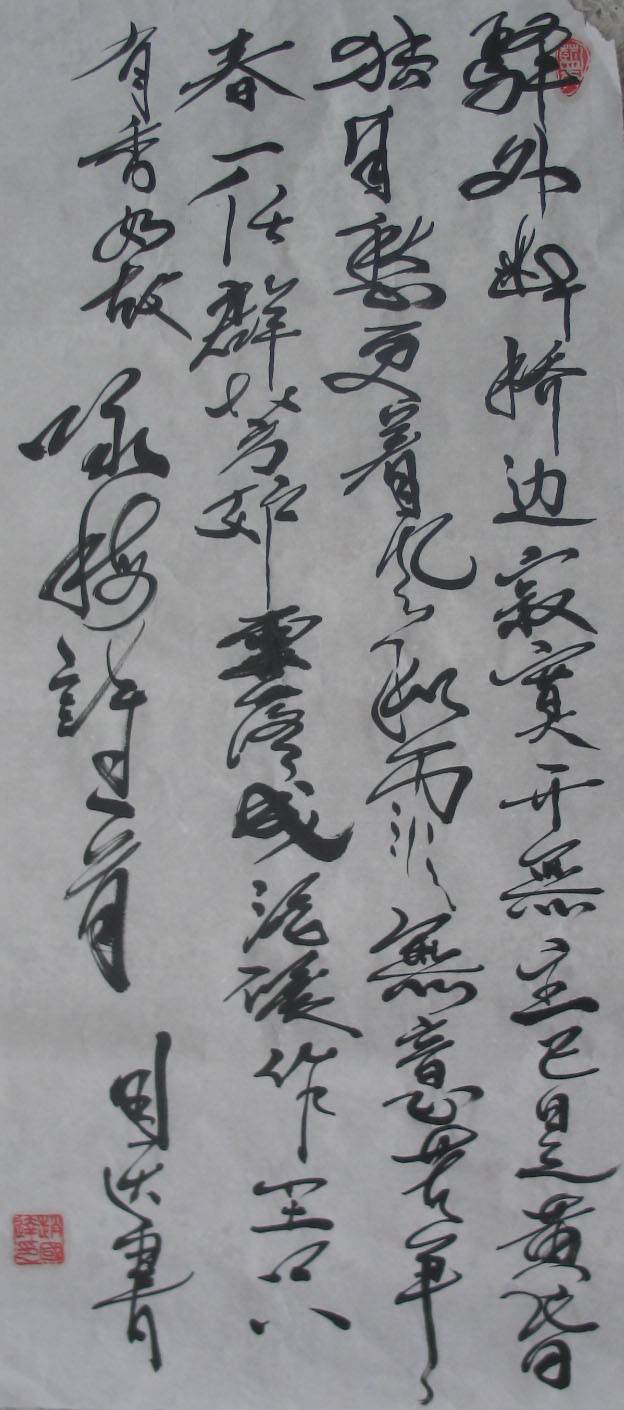 驿外断桥边寂寞开無主已是黄昏
独自愁更着风和雨無意苦争
春一任群芳妒零落成泥碾作尘只
有香如故 咏梅詩一首 国达書